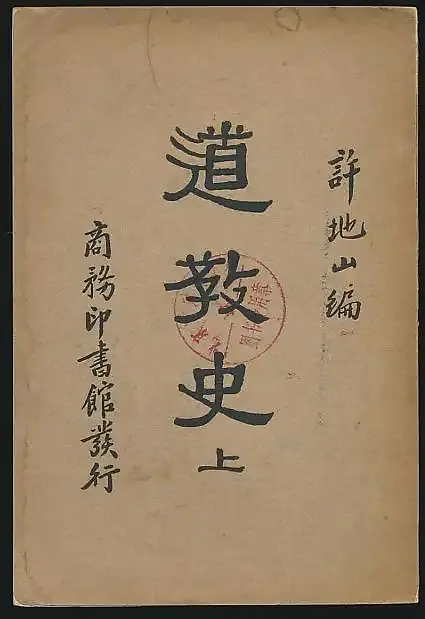 許地山編
道教史上
商務印書館發行